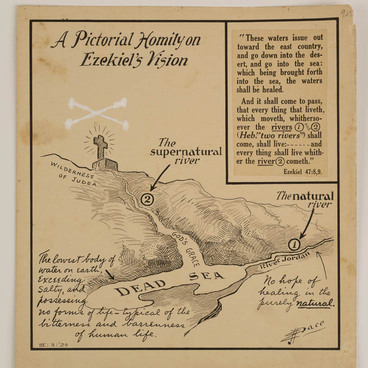 A Pictorial Homily on
Ezekiel's Vision
"These waters issue out
toward the east country,
and go down into the des-
ert, and go into the sea:
which being brought forth
into the sea, the waters
shall be healed.
And it shall come to pass,
that every thing that liveth,
which moveth, whitherso-
ever the rivers ① ②
(Heb."two rivers") shall
come, shall live:------and
every thing shall live whith-
er the river ② cometh."
Ezekiel 47:8,9.
The
supernatural
river
WILDERNESS
OF JUDEA
②
GOD'S GRACE
The natural
river
①
River Jordan
DEAD SEA
The lowest body of
water on earth,
Exceeding
Salty, and
possessing
no forms of life-typical of the
bitterness and barrenness
of human life.
No hope of
healing in the
purely natural.
Pace